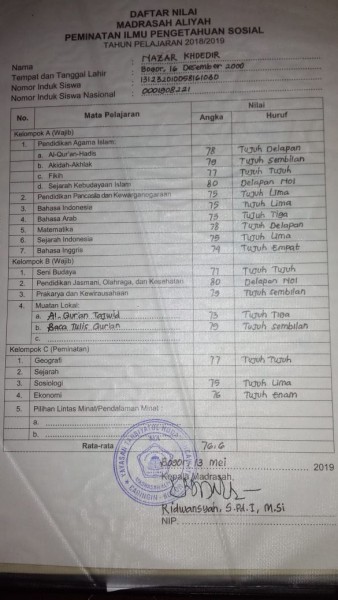 DAFTAR NILAI
MADRASAH ALIYAH
PEMINATAN ILMU PENGETAHUAN SOSIAL
TAHUN PELAJARAN 2018/2019
Nama : NAZAR KHOEDIR
Tempat dan Tanggal Lahir : Bogor, 16 Desember 2000
Nomor Induk Siswa : 
Nomor Induk Siswa Nasional : 0001808221
No. Mata Pelajaran Nilai
Angka Huruf
Kelompok A (Wajib)
1. Pendidikan Agama Islam:
a. Al-Qur'an-Hadis 78 Tujuh Delapan
b. Akidah-Akhlak 79 Tujuh Sembilan
c. Fikih 77 Tujuh Tujuh
d. Sejarah Kebudayaan Islam 80 Delapan Nol
2. Pendidikan Pancasila dan Kewarganegaraan 75 Tujuh Lima
3. Bahasa Indonesia 75 Tujuh Lima
4. Bahasa Arab 73 Tujuh Tiga
5. Matematika 78 Tujuh Delapan
6. Sejarah Indonesia 75 Tujuh Lima
7. Bahasa Inggris 74 Tujuh Empat
Kelompok B (Wajib)
1. Seni Budaya 77 Tujuh Tujuh
2. Pendidikan Jasmani, Olahraga, dan Kesehatan 80 Delapan Nol
3. Prakarya dan Kewirausahaan 79 Tujuh Sembilan
4. Muatan Lokal:
a. Al-Qur'an Tajwid 73 Tujuh Tiga
b. Baca Tulis Qur'an 79 Tujuh Sembilan
c.
Kelompok C (Peminatan)
1. Geografi 77 Tujuh Tujuh
2. Sejarah
3. Sosiologi 75 Tujuh Lima
4. Ekonomi 76 Tujuh Enam
5. Pilihan Lintas Minat/Pendalaman Minat :
a.
b.
Rata-rata 76.6
Bogor, 13 Mei 2019
Kepala Madrasah,
Ridwansyah, S.Pd.I, M.Si
NIP.